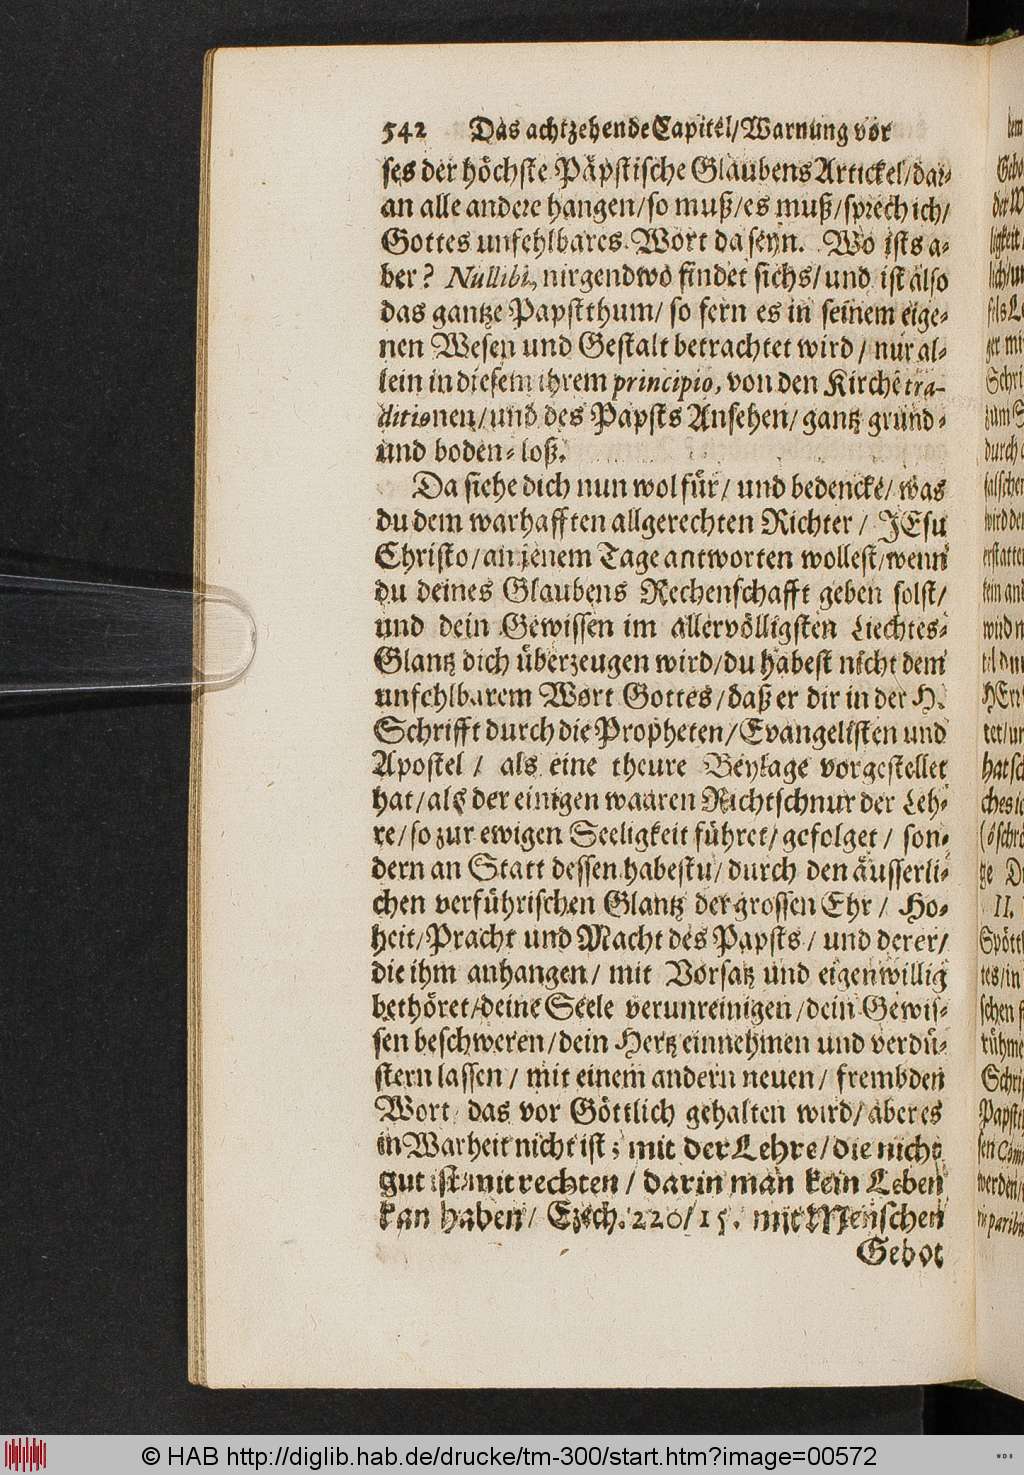 542 Das achtzehende Capitel/Warnung vor
ses der höchste Päpstische Glaubens Artickel/dar-
an alle andere hangen/so muß/es muß/sprech ich/
Gottes unfehlbares Wort da seyn. Wo ists a-
ber? Nullibi, nirgendwo findet sichs/und ist also
das gantze Papstthum/ so fern es in seinem eige-
nen Wesen und Gestalt betrachtet wird/ nur al-
lein in diesem ihrem principio, von den Kirchē tra-
ditionen/und des Papsts Ansehen/ gantz grund-
und boden-loß.
Da siehe dich nun wol für/ und bedencke/ was
du dem warhafften allgerechten Richter/ JEsu
Christo/an jenem Tage antworten wollest/wenn
du deines Glaubens Rechenschafft geben solst/
und dein Gewissen im allervölligsten Liechtes-
Glantz dich überzeugen wird/du habest nicht dem
unfehlbarem Wort Gottes/daß er dir in der H.
Schrifft durch die Propheten/Evangelisten und
Apostel/ als eine theure Beylage vorgestellet
hat/als der einigen waaren Richtschnur der Leh-
re/so zur ewigen Seeligkeit führet/gefolget/ son-
dern an Statt dessen habestu/durch den äusserli-
chen verführischen Glantz der grossen Ehr/ Ho-
heit/Pracht und Macht des Papsts/ und derer/
die ihm anhangen/ mit Vorsatz und eigenwillig
bethöret/deine Seele verunreinigen/dein Gewis-
sen beschweren/dein Hertz einnehmen und verdü-
stern lassen/ mit einem andern neuen/ frembden
Wort/ das vor Göttlich gehalten wird/aber es
in Warheit nicht ist; mit der Lehre/die nicht
gut ist/mit rechten/ darin man kein Leben
kan haben/ Ezech. 220/15. mit Menschen
Gebot
© HAB http://diglib.hab.de/drucke/tm-300/start.htm?image=00572